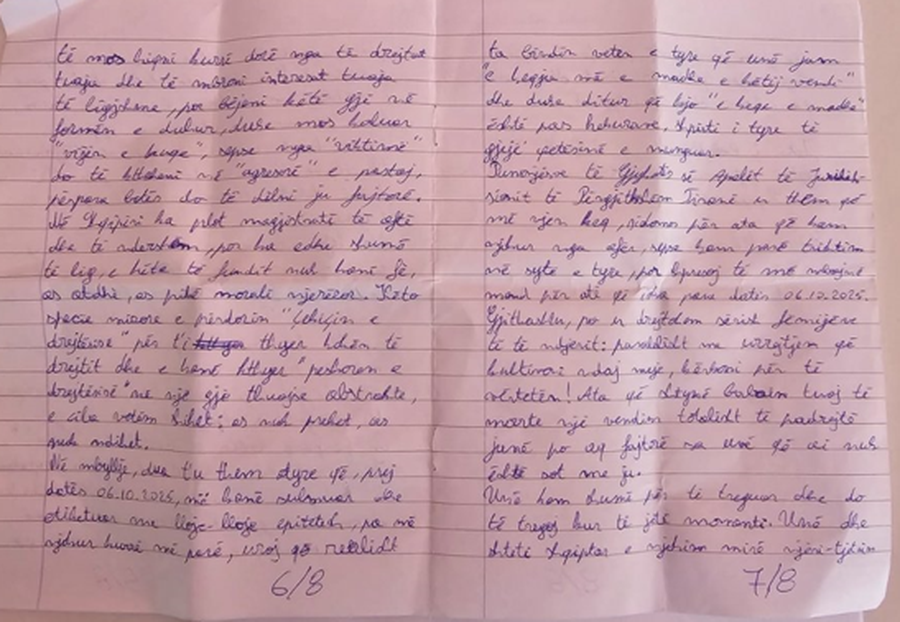 të mos hiqni kurrë dorë nga të drejtat
tuaja dhe të mbroni interesat tuaja
të ligjshme, por bëjeni këtë gjë në
formën e duhur, duke mos kaluar
"vijën e kuqe", sepse nga "viktimë"
do të ktheheni në "agresorë" e pastaj,
përpara botës do të dilni ju fajtorë.
Në Shqipëri ka plot magjistratë të aftë
dhe të ndershëm, por ka edhe shumë
të lig, e këta të fundit nuk kanë fe,
as atdhe, as pikë morali njerëzor. Këto
specie mizore e përdorin "Çekiçin e
drejtësisë" për t'i thyer kokën të
drejtit dhe e kanë kthyer "peshoren e
drejtësisë" në një gjë thuajse abstrakte,
e cila vetëm shihet; as nuk preket, as
nuk ndihet.
Në mbyllje, dua t'u them atyre që, prej
datës 06.10.2025, më kanë sulmuar dhe
etiketuar me lloje-lloje epitetesh, pa më
njohur kurrë më parë, uroj që realisht
6/8
ta bindin veten e tyre që unë jam
"e keqja më e madhe e këtij vendi"
dhe duke ditur që kjo "e keqe e madhe"
është pas hekurave, shpirti i tyre të
gjejë qetësinë e munguar.
Punonjësve të Gjykatës së Apelit të Juridik-
sionit të Përgjithshëm Tiranë u them që
më vjen keq, sidomos për ata që kam
njohur nga afër, sepse kam parë trishtim
në sytë e tyre, por shpresoj të më mbajnë
mend për atë që isha para datës 06.10.2025.
Gjithashtu, po u drejtohem sërish fëmijëve
të të ndjerit: paralelisht me urrejtjen që
kultivoni ndaj meje, kërkoni për të
vërtetën! Ata që shtynë babain tuaj të
merrte një vendim totalisht të padrejtë
janë po aq fajtorë sa unë që ai nuk
është sot me ju.
Unë kam shumë për të treguar dhe do
të tregoj kur të jetë momenti. Unë dhe
shteti shqiptar e njohim mirë njëri-tjetrin
7/8